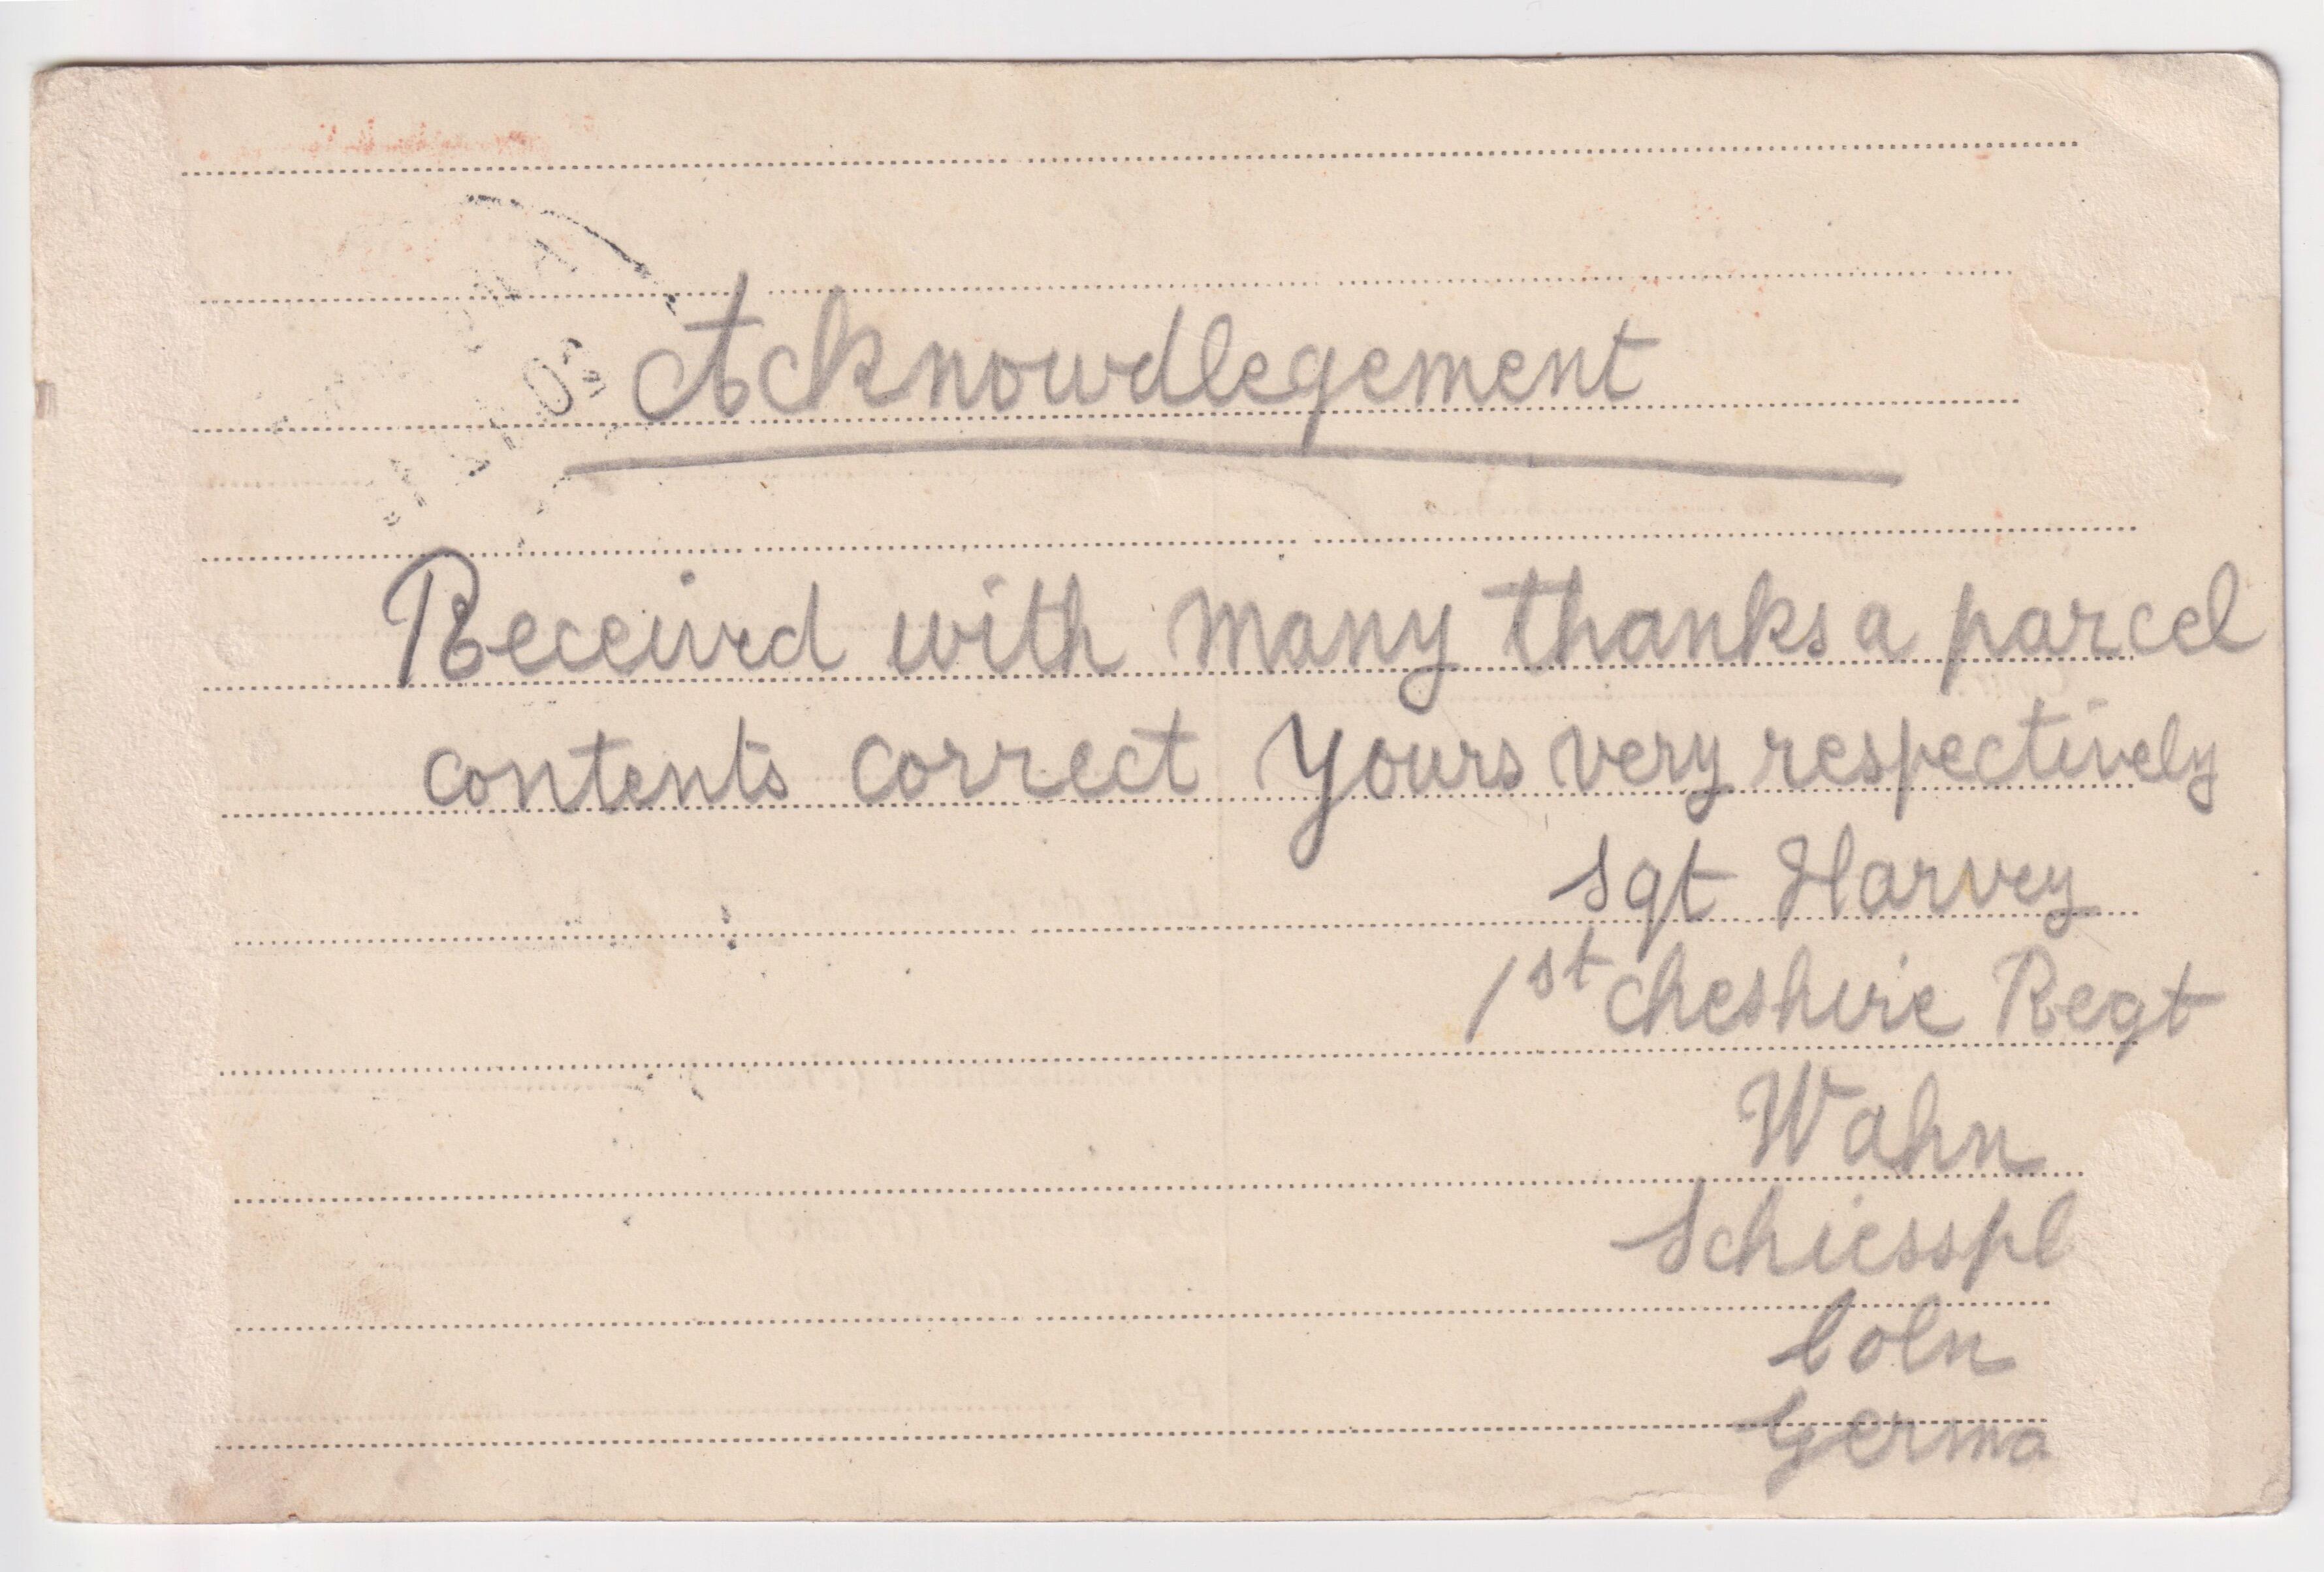 Acknowdlegement
Received with many thanks a parcel
contents correct Yours very respectively
Sgt Harvey
1st Cheshire Regt
Wahn
Schiesspl
Coln
Germa